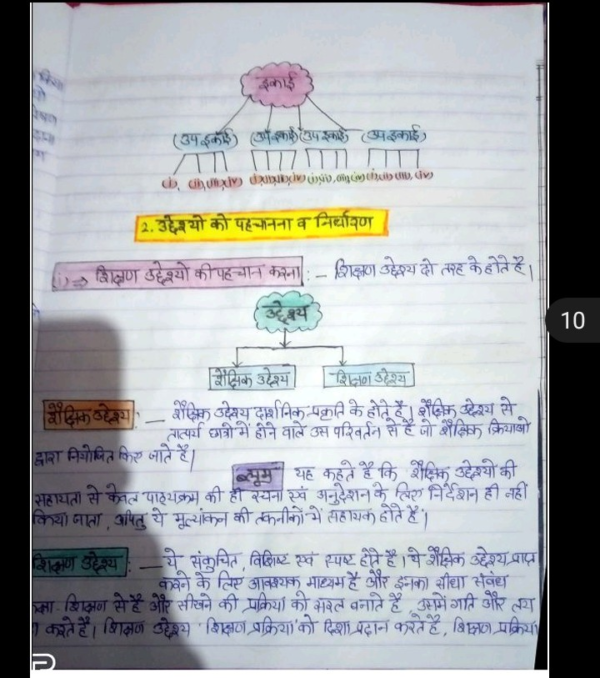 इकाई
(उप इकाई) (उप इकाई) (उप इकाई) (उप इकाई)
2. उद्देश्यो को पहचानना व निर्धारण
(i) ⇒ शिक्षण उद्देश्यो की पहचान करना : – शिक्षण उद्देश्य दो तरह के होते है।
उद्देश्य
शैक्षिक उद्देश्य शिक्षण उद्देश्य
शैक्षिक उद्देश्य : — शैक्षिक उद्देश्य दार्शनिक प्रकृति के होते है। शैक्षिक उद्देश्य से
तात्पर्य छात्रो में होने वाले उस परिवर्तन से है जो शैक्षिक क्रियाओ
द्वारा नियोजित किए जाते है।
ब्लूम यह कहते है कि शैक्षिक उद्देश्यो की
सहायता से केवल पाठ्यक्रम की ही रचना एवं अनुदेशन के लिए निर्देशन ही नही
किया जाता, अपितु ये मूल्यांकन की तकनीको में सहायक होते है।
शिक्षण उद्देश्य : — ये संकुचित, विशिष्ट एवं स्पष्ट होते है। ये शैक्षिक उद्देश्य प्राप्त
करने के लिए आवश्यक माध्यम है और इनका सीधा संबंध
शिक्षण से है और सीखने की प्रक्रिया को सरल बनाते है, उसमें गति और लय
करते है। शिक्षण उद्देश्य शिक्षण प्रक्रिया को दिशा प्रदान करते है, शिक्षण प्रक्रिया
10